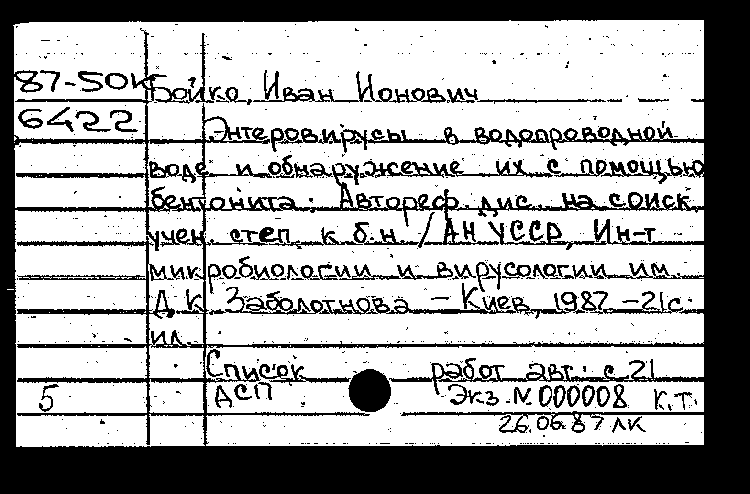 87-50К Бойко, Иван Ионович
6422 Энтеровирусы в водопроводной
воде и обнаружение их с помощью
бентонита: Автореф. дис. на соиск.
учен. степ. к.б.н. / АН УССР, Ин-т
микробиологии и вирусологии им.
Д.К. Заболотнова - Киев, 1987 - 21с.
ил.
Список работ авт.: с 21
5 ДСП Экз. N 000008 К.Т.
26.06.87 ЛК